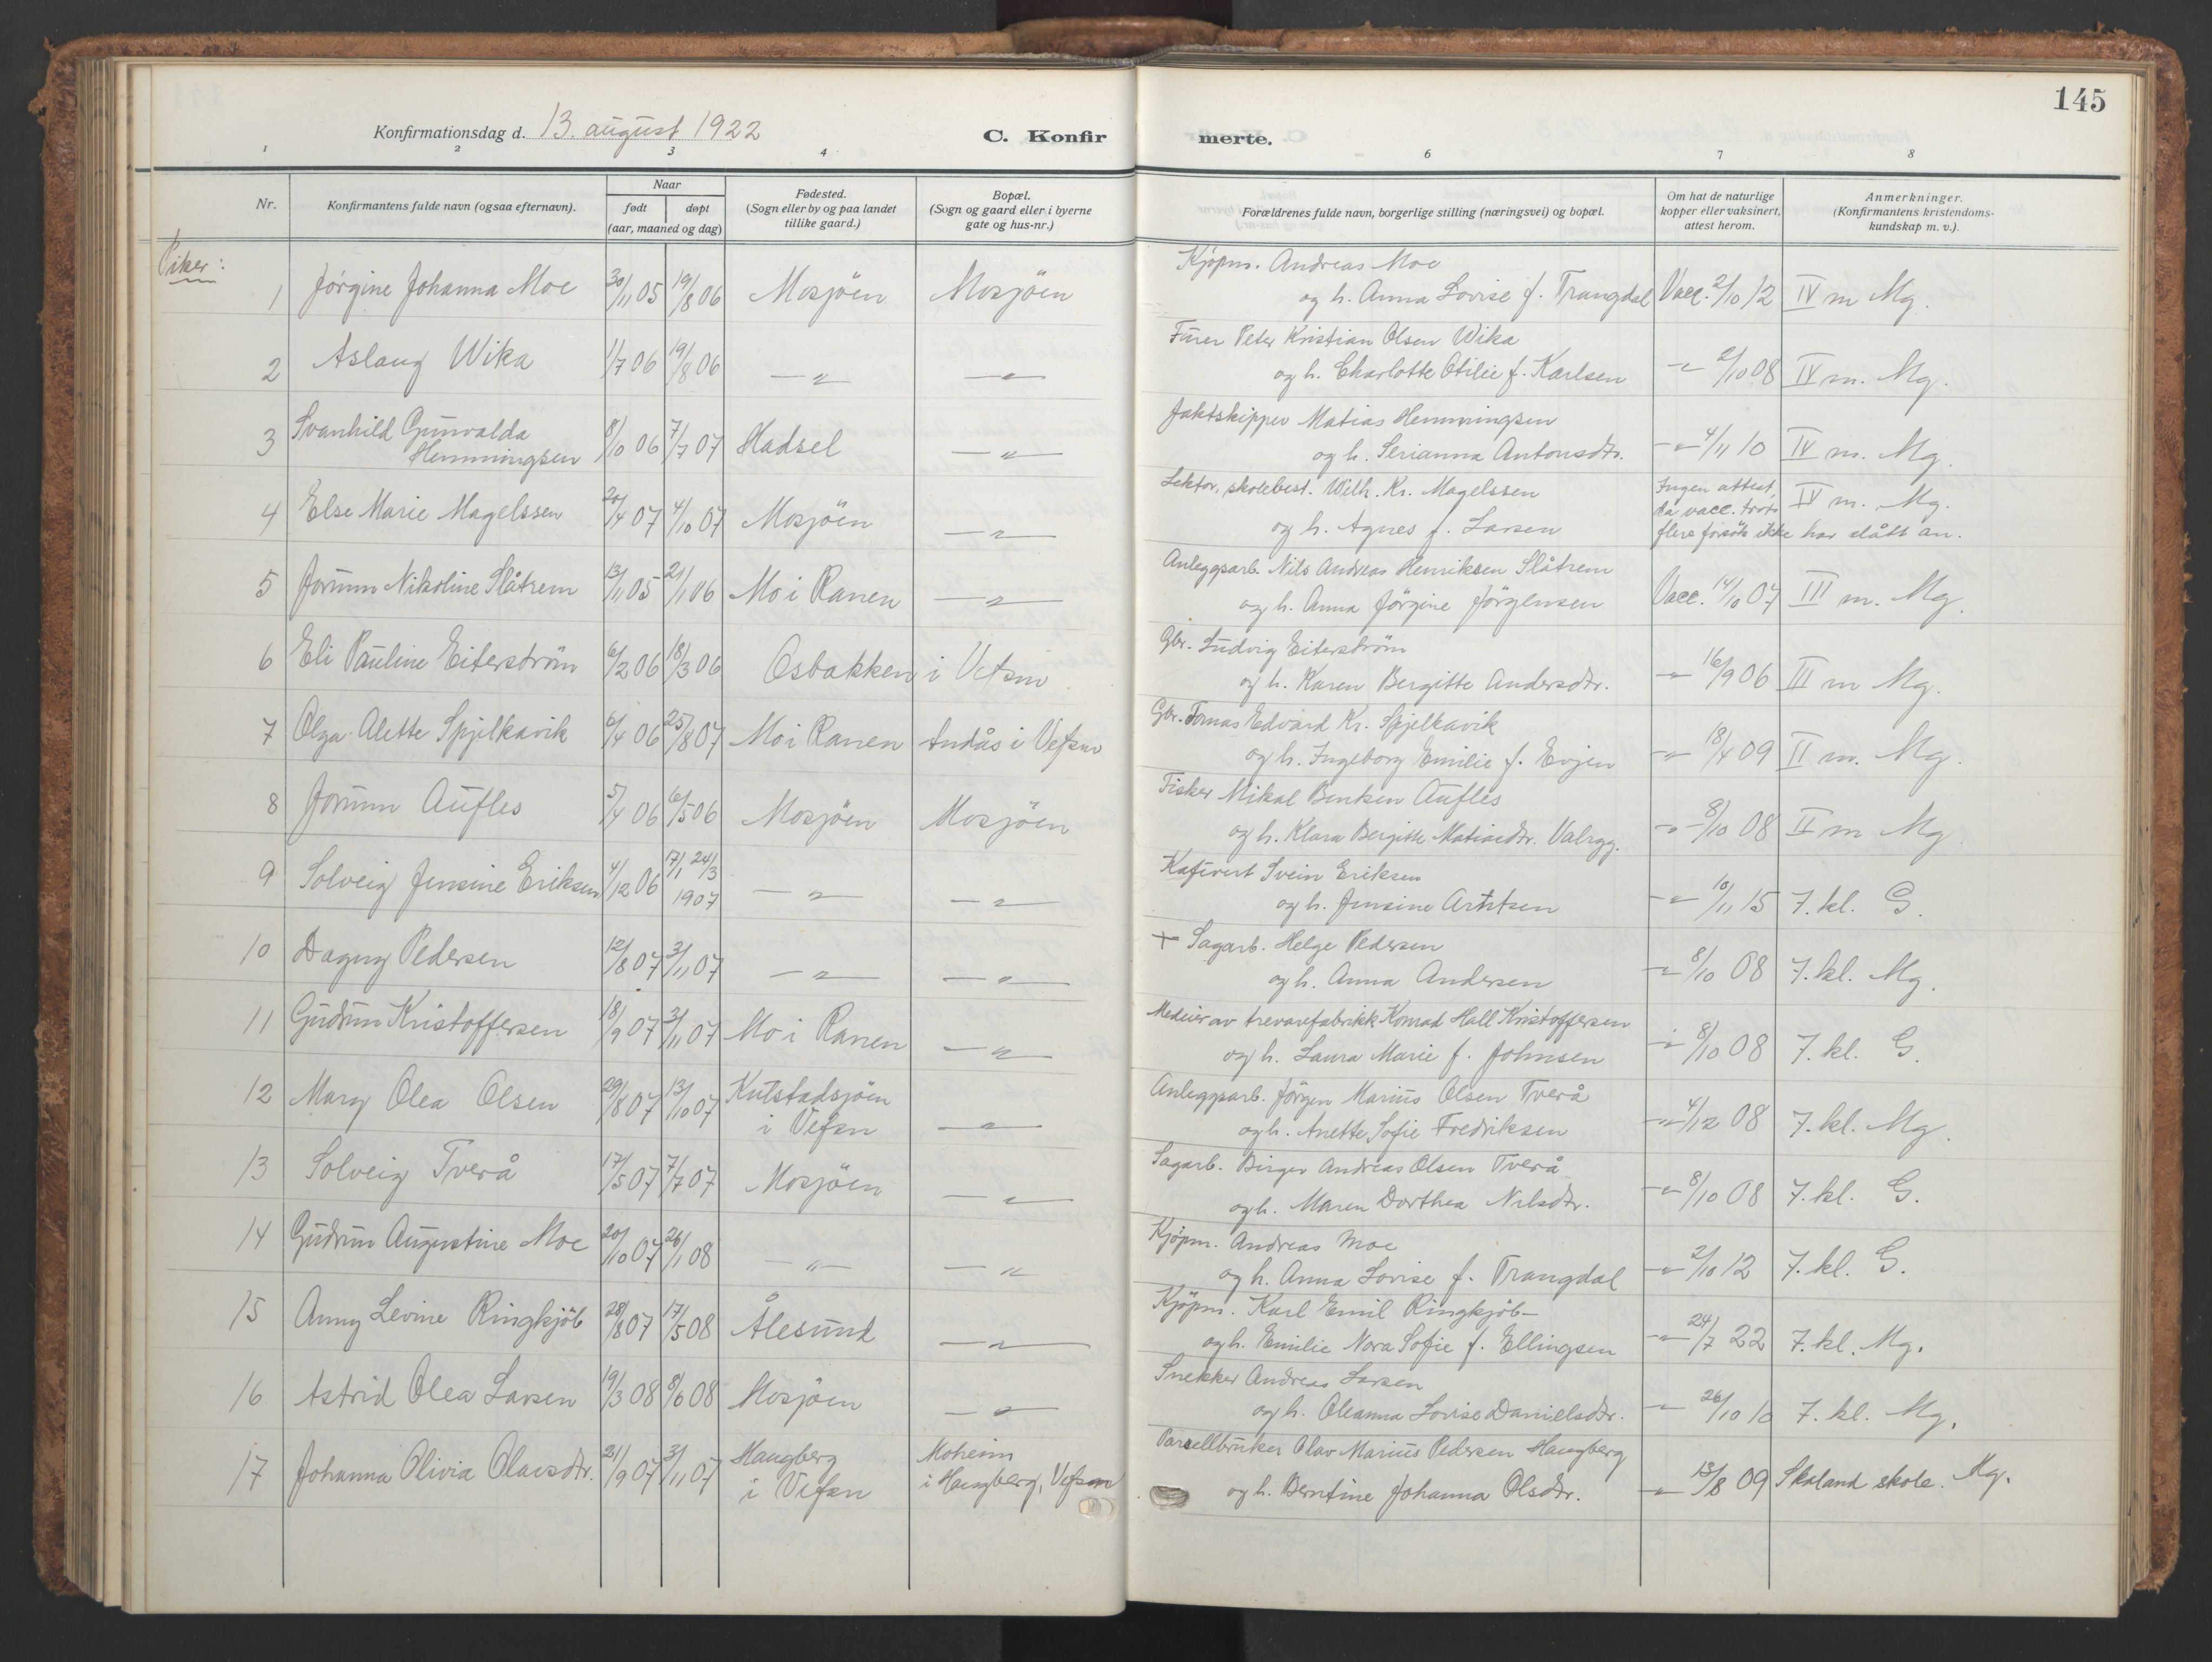 145
Konfirmationsdag d. 13. august 1922
C. Konfir
merte.
1 2 3 4 6 7 8
Nr.
Konfirmantens fulde navn (ogsaa efternavn).
Naar
født døpt
(aar, maaned og dag)
Fødested.
(Sogn eller by og paa landet
tillike gaard.)
Bopæl.
(Sogn og gaard eller i byerne
gate og hus-nr.)
Forældrenes fulde navn, borgerlige stilling (næringsvei) og bopæl.
Om hat de naturlige
kopper eller vaksinert,
attest herom.
Anmerkninger.
(Konfirmantens kristendoms-
kundskap m. v.).
Piker:
1 Jørgine Johanna Moe 30/11 05 19/8 06 Mosjöen Mosjöen
Kjøpm. Andreas Moe
og h. Anna Lovise f. Trangdal Vacc. 2/10 12 IV m Mg.
2 Aslaug Wika 1/7 06 19/8 06 —〃— —〃—
Furer Peter Kristian Olsen Wika
og h. Charlotte Otilie f. Karlsen —〃— 2/10 08 IV m. Mg.
3 Svanhild Gunvalda
Hemmingsen 8/10 06 7/7 07 Hadsel —〃—
Jaktskipper Matias Hemmingsen
og h. Serianna Antonsdtr. —〃— 4/11 10 IV m. Mg.
4 Else Marie Magelssen 20/4 07 4/10 07 Mosjöen —〃—
Lektor, skolebest. Wilh. Kr. Magelssen
og h. Agnes f. Larsen
Ingen attest, IV m. Mg.
da vacc. trots
flere forsök ikke har slått an.
5 Jorunn Nikoline Slåtrem 13/11 05 21/1 06 Mo i Ranen —〃—
Anleggsarb. Nils Andreas Henriksen Slåtrem
og h. Anna Jörgine Jörgensen Vacc. 14/10 07 III m. Mg.
6 Eli Pauline Eiterström 6/2 06 18/3 06 Osbakken i Vefsn
Gbr. Ludvig Eiterström
og h. Karen Bergitte Andersdtr. —〃— 16/9 06 III m Mg.
7 Olga Alette Spjelkavik 6/4 06 25/8 07 Mo i Ranen Andås i Vefsn
Gbr. Tomas Edvard Kr. Spjelkavik
og h. Ingeborg Emilie f. Evjen —〃— 18/4 09 II m. Mg.
8 Jorunn Aufles 5/4 06 6/5 06 Mosjöen Mosjöen
Fisker Mikal Bentsen Aufles
og h. Klara Bergitte Matiasdtr. —〃— 8/10 08 II m Mg
9 Solveig Jensine Eriksen 4/12 06 17/1 24/3
1907 —〃— —〃—
Kafivert Svein Eriksen
og h. Jensine Arntsen —〃— 10/11 15 7. kl. G.
10 Dagny Pedersen 12/8 07 3/11 07 —〃— —〃—
+ Sagarb. Helge Pedersen
og h. Anna Andersen —〃— 8/10 08 7. kl. Mg.
11 Gudrun Kristoffersen 18/9 07 3/11 07 Mo i Ranen —〃—
Medeier av trevarefabrikk Konrad Hall Kristoffersen
og h. Laura Marie f. Johnsen —〃— 8/10 08 7. kl. G.
12 Mary Olea Olsen 29/8 07 13/10 07 Kulstadsjöen
i Vefsn —〃—
Anleggsarb. Jörgen Marius Olsen Tverå
og h. Anette Sofie Fredriksen —〃— 4/12 08 7. kl. Mg.
13 Solveig Tverå 17/5 07 7/7 07 Mosjöen —〃—
Sagarb. Birger Andreas Olsen Tverå
og h. Maren Dorthea Nilsdtr. —〃— 8/10 08 7. kl. G.
14 Gudrun Augustine Moe 20/10 07 26/1 08 —〃— —〃—
Kjøpm. Andreas Moe
og h. Anna Lovise f. Trangdal —〃— 2/10 12 7. kl. G.
15 Anny Levine Ringkjöb 28/8 07 17/5 08 Ålesund —〃—
Kjöpm. Karl Emil Ringkjöb
og h. Emilie Nora Sofie f. Ellingsen —〃— 24/7 22 7. kl. Mg.
16 Astrid Olea Larsen 19/3 08 8/6 08 Mosjöen —〃—
Snekker Andreas Larsen
og h. Oleanna Lovise Danielsdtr. —〃— 26/10 10 7. kl. Mg.
17 Johanna Olivia Olavsdtr. 21/9 07 3/11 07 Haugberg
i Vefsn
Moheim
i Haugberg, Vefsn
Parsellbruker Olav Marius Pedersen Haugberg
og h. Berntine Johanna Olsdtr. —〃— 13/8 09 Skoland skole. Mg.